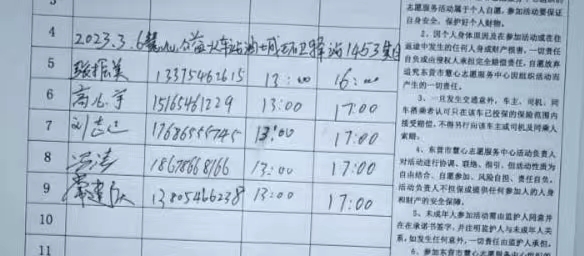 3
4 2023.3.6
5 张振英 13375462615 13:00 16:00
6 15165461229 13:00 17:00
7 17686555745 13:00 17:00
8 冯涛 18678668166 13:00 17:00
9 13805466238 13:00 17:00
10
11
愿服务活动属于个人自愿，参加活动要保证
自身安全，保护好个人财物。
2、因个人身体原因及在参加活动或在往
返途中发生的任何人身或财产损害，一切责
任自负或由侵权人承担完全赔偿责任，自愿放弃
追究东营市慧心志愿服务中心因组织活动而
产生的一切责任。
3、一旦发生交通意外，车主、司机、同
车搭乘者认可只在该车已投保的保险范围内
接受赔偿，不得另行向该车主或司机及同乘人
索赔。
4、东营市慧心志愿服务中心活动负责人
对活动进行协调、联络、指引，但活动性质为
自由结合、自愿参加、风险自担、责任自负，
活动负责人不担保或提供任何参加人的人身
和财产的安全保障。
5、未成年人参加活动需由监护人同意并
在在承诺书签字，并注明监护人与未成年人关
系，如发生任何意外，一切责任由监护人承担。
6、参加东营市慧心志愿服务中心组织的